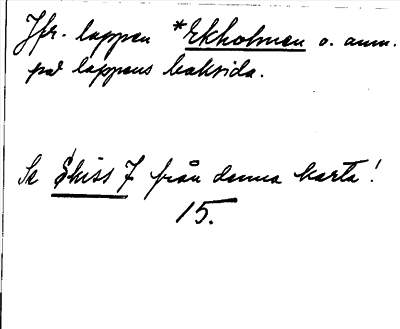 Jfr. lappen *Ekholmen o. anm.
på lappens baksida.
Se Skiss 7 från denna karta!
15.